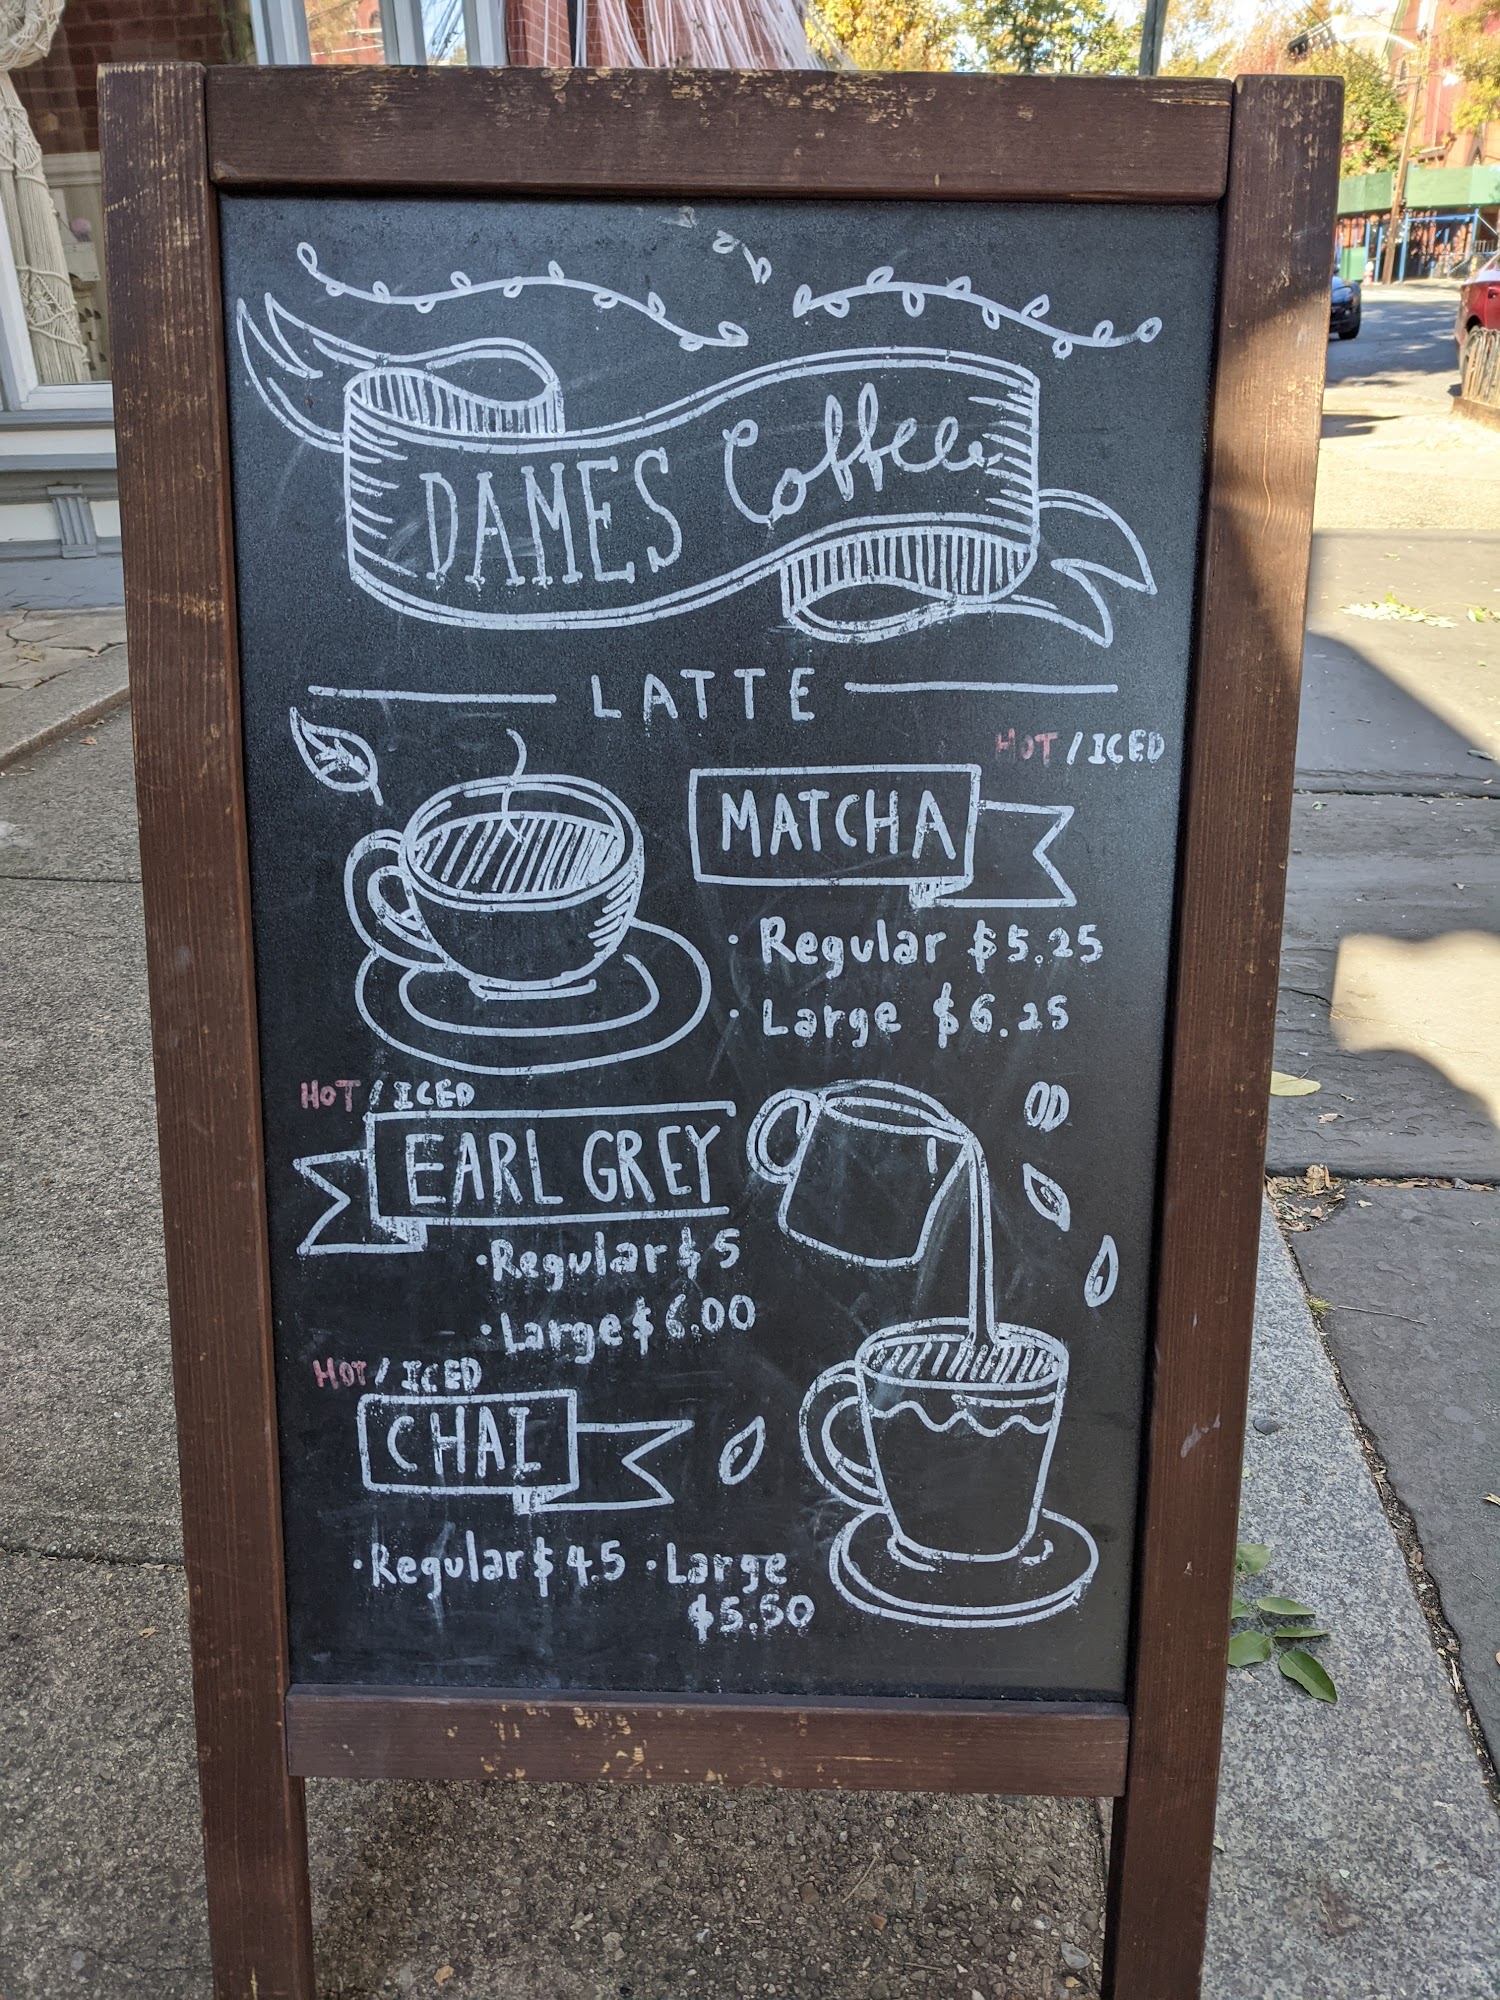 DAMES Coffee
LATTE
HOT / ICED
MATCHA
· Regular $5.25
· Large $6.25
HOT / ICED
EARL GREY
· Regular $5
· Large $6.00
HOT / ICED
CHAI
· Regular $4.5 · Large
$5.50